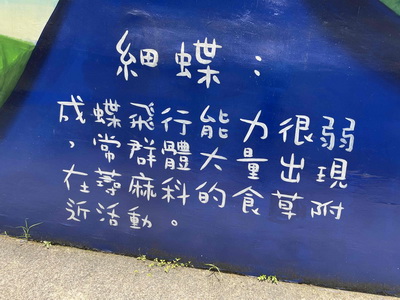 細蝶：
成蝶飛行能力很弱
，常群體大量出現
在蕁麻科的食草附
近活動。